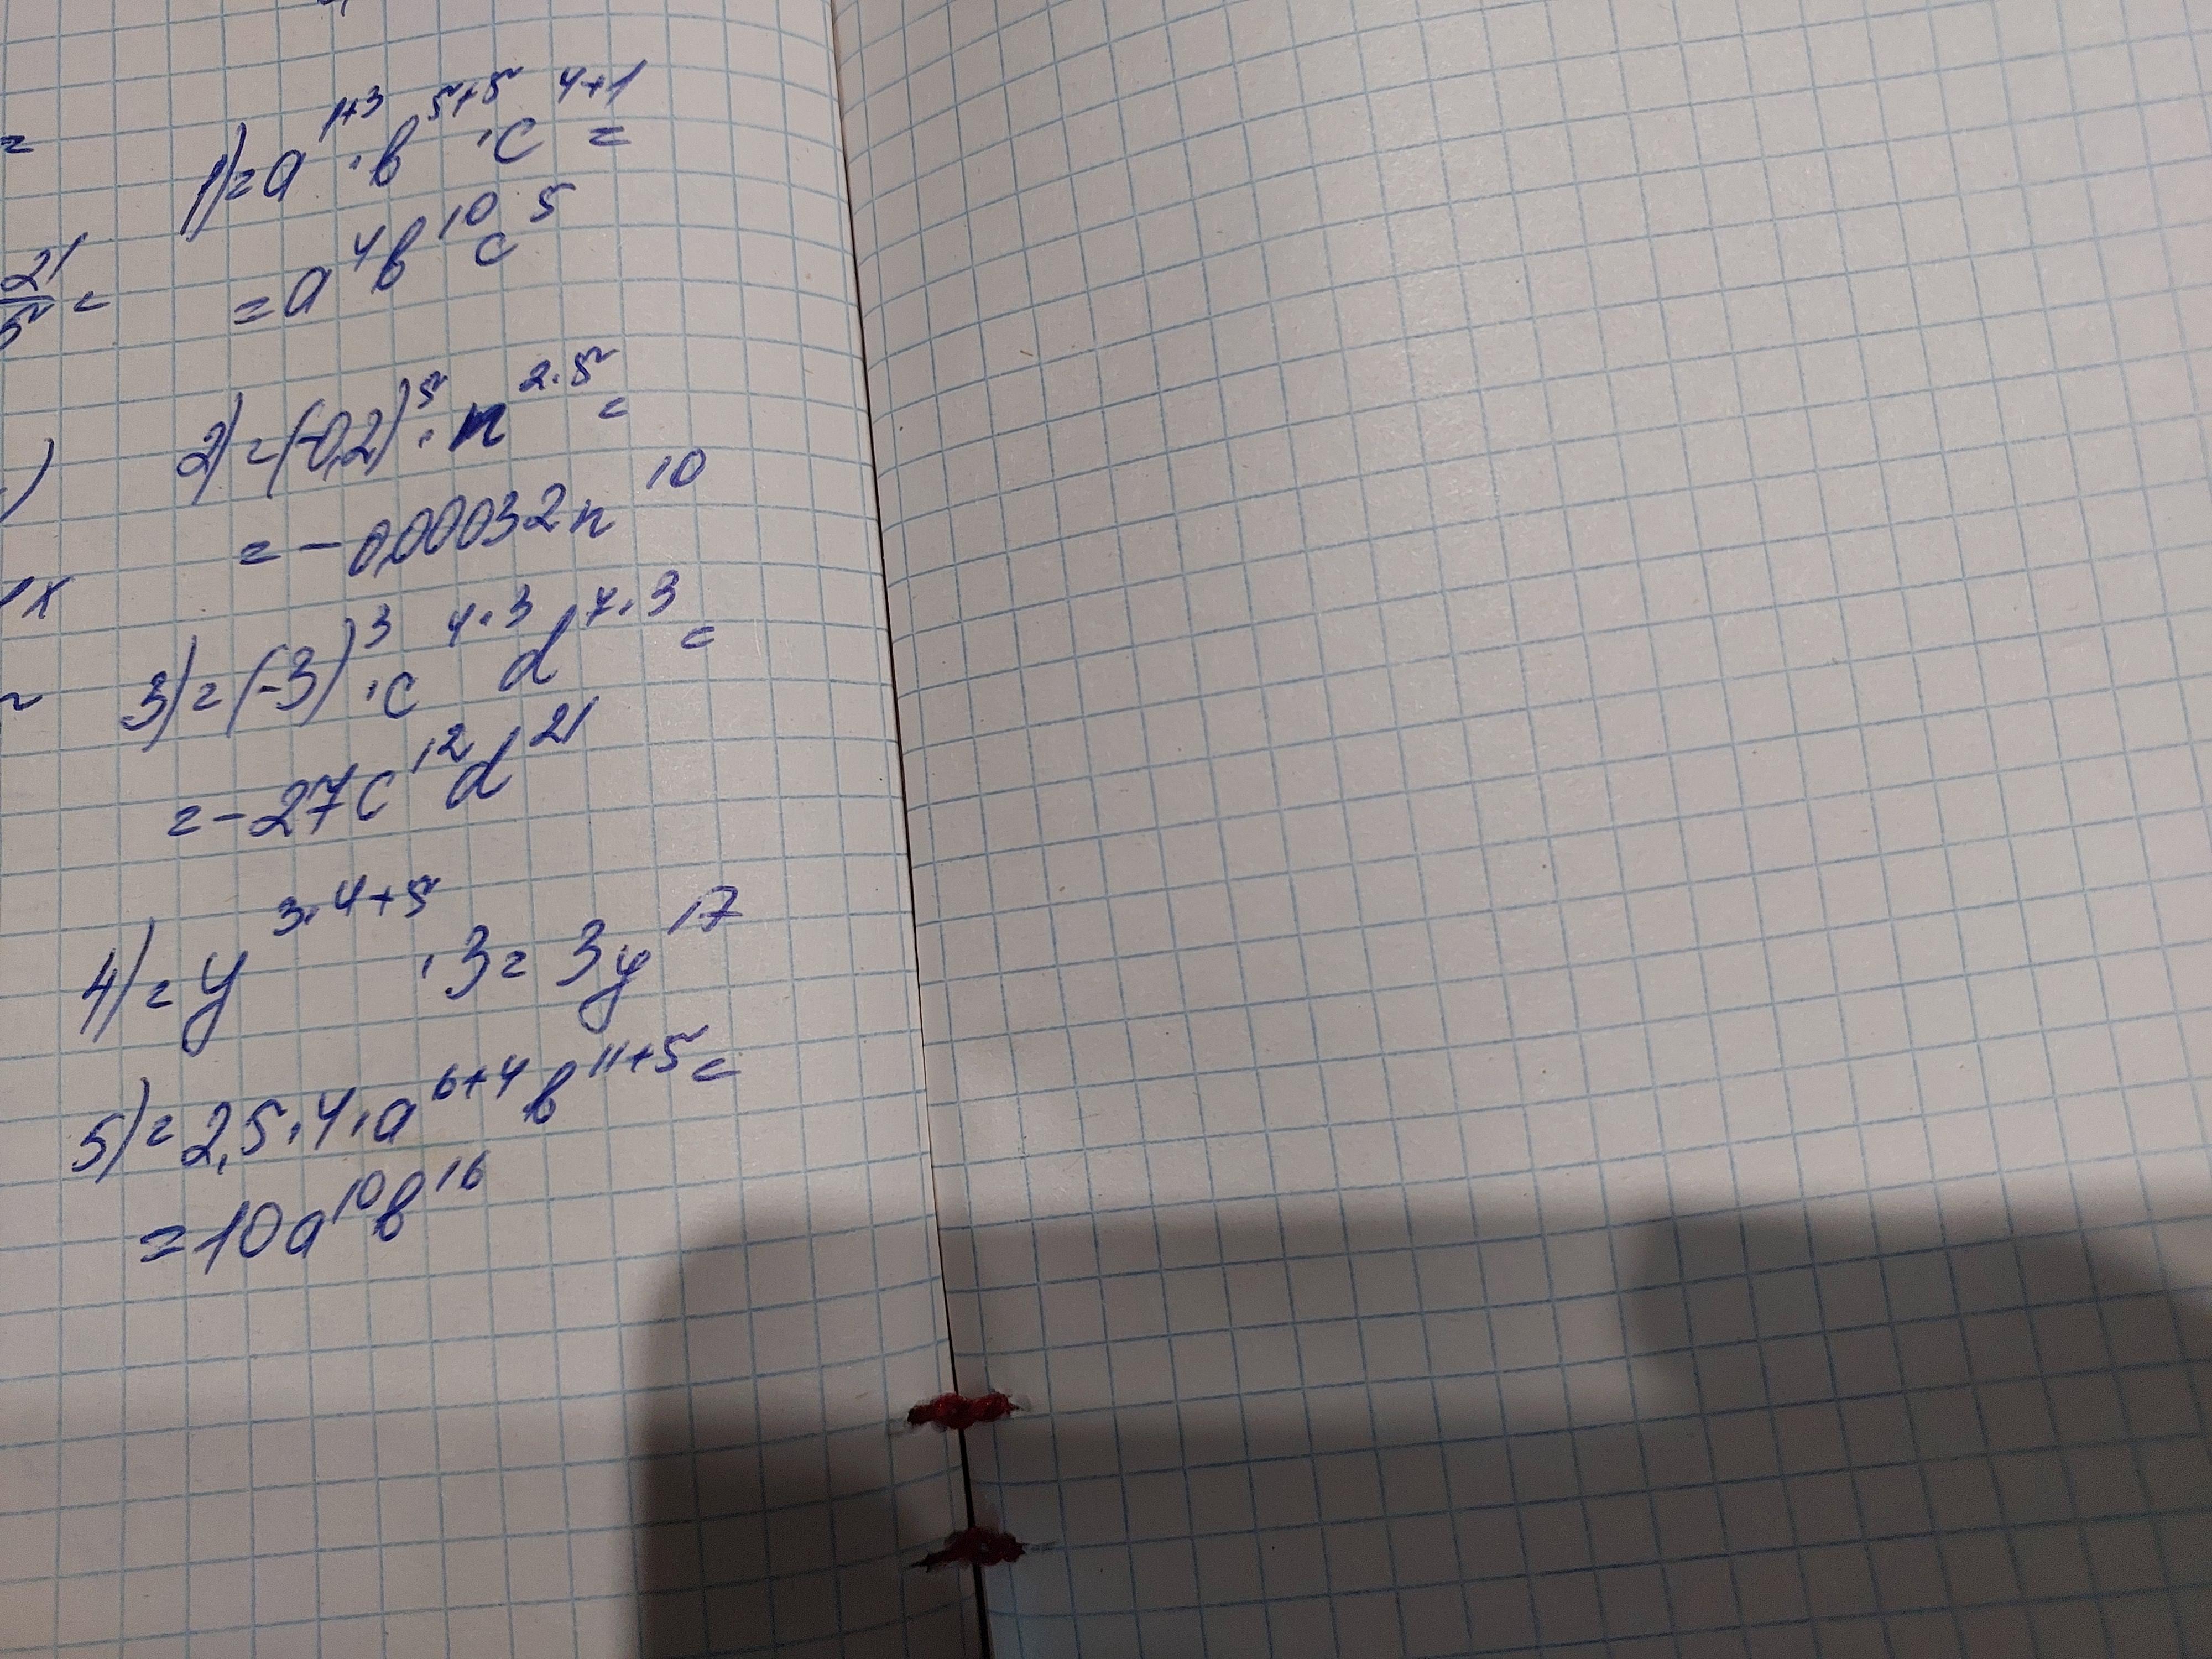 =
1) = a^{1+3} · b^{5+5} · c^{4+1} =
= a^4 b^{10} c^5
21/5 =
2) = (-0,2)^5 · n^{2·5} =
)
= - 0,00032 n^{10}
x
3) = (-3)^3 · c^{4·3} d^{7·3} =
= -27 c^{12} d^{21}
4) = y^{3·4+5} · 3 = 3y^{17}
5) = 2,5 · 4 · a^{6+4} b^{11+5} =
= 10 a^{10} b^{16}